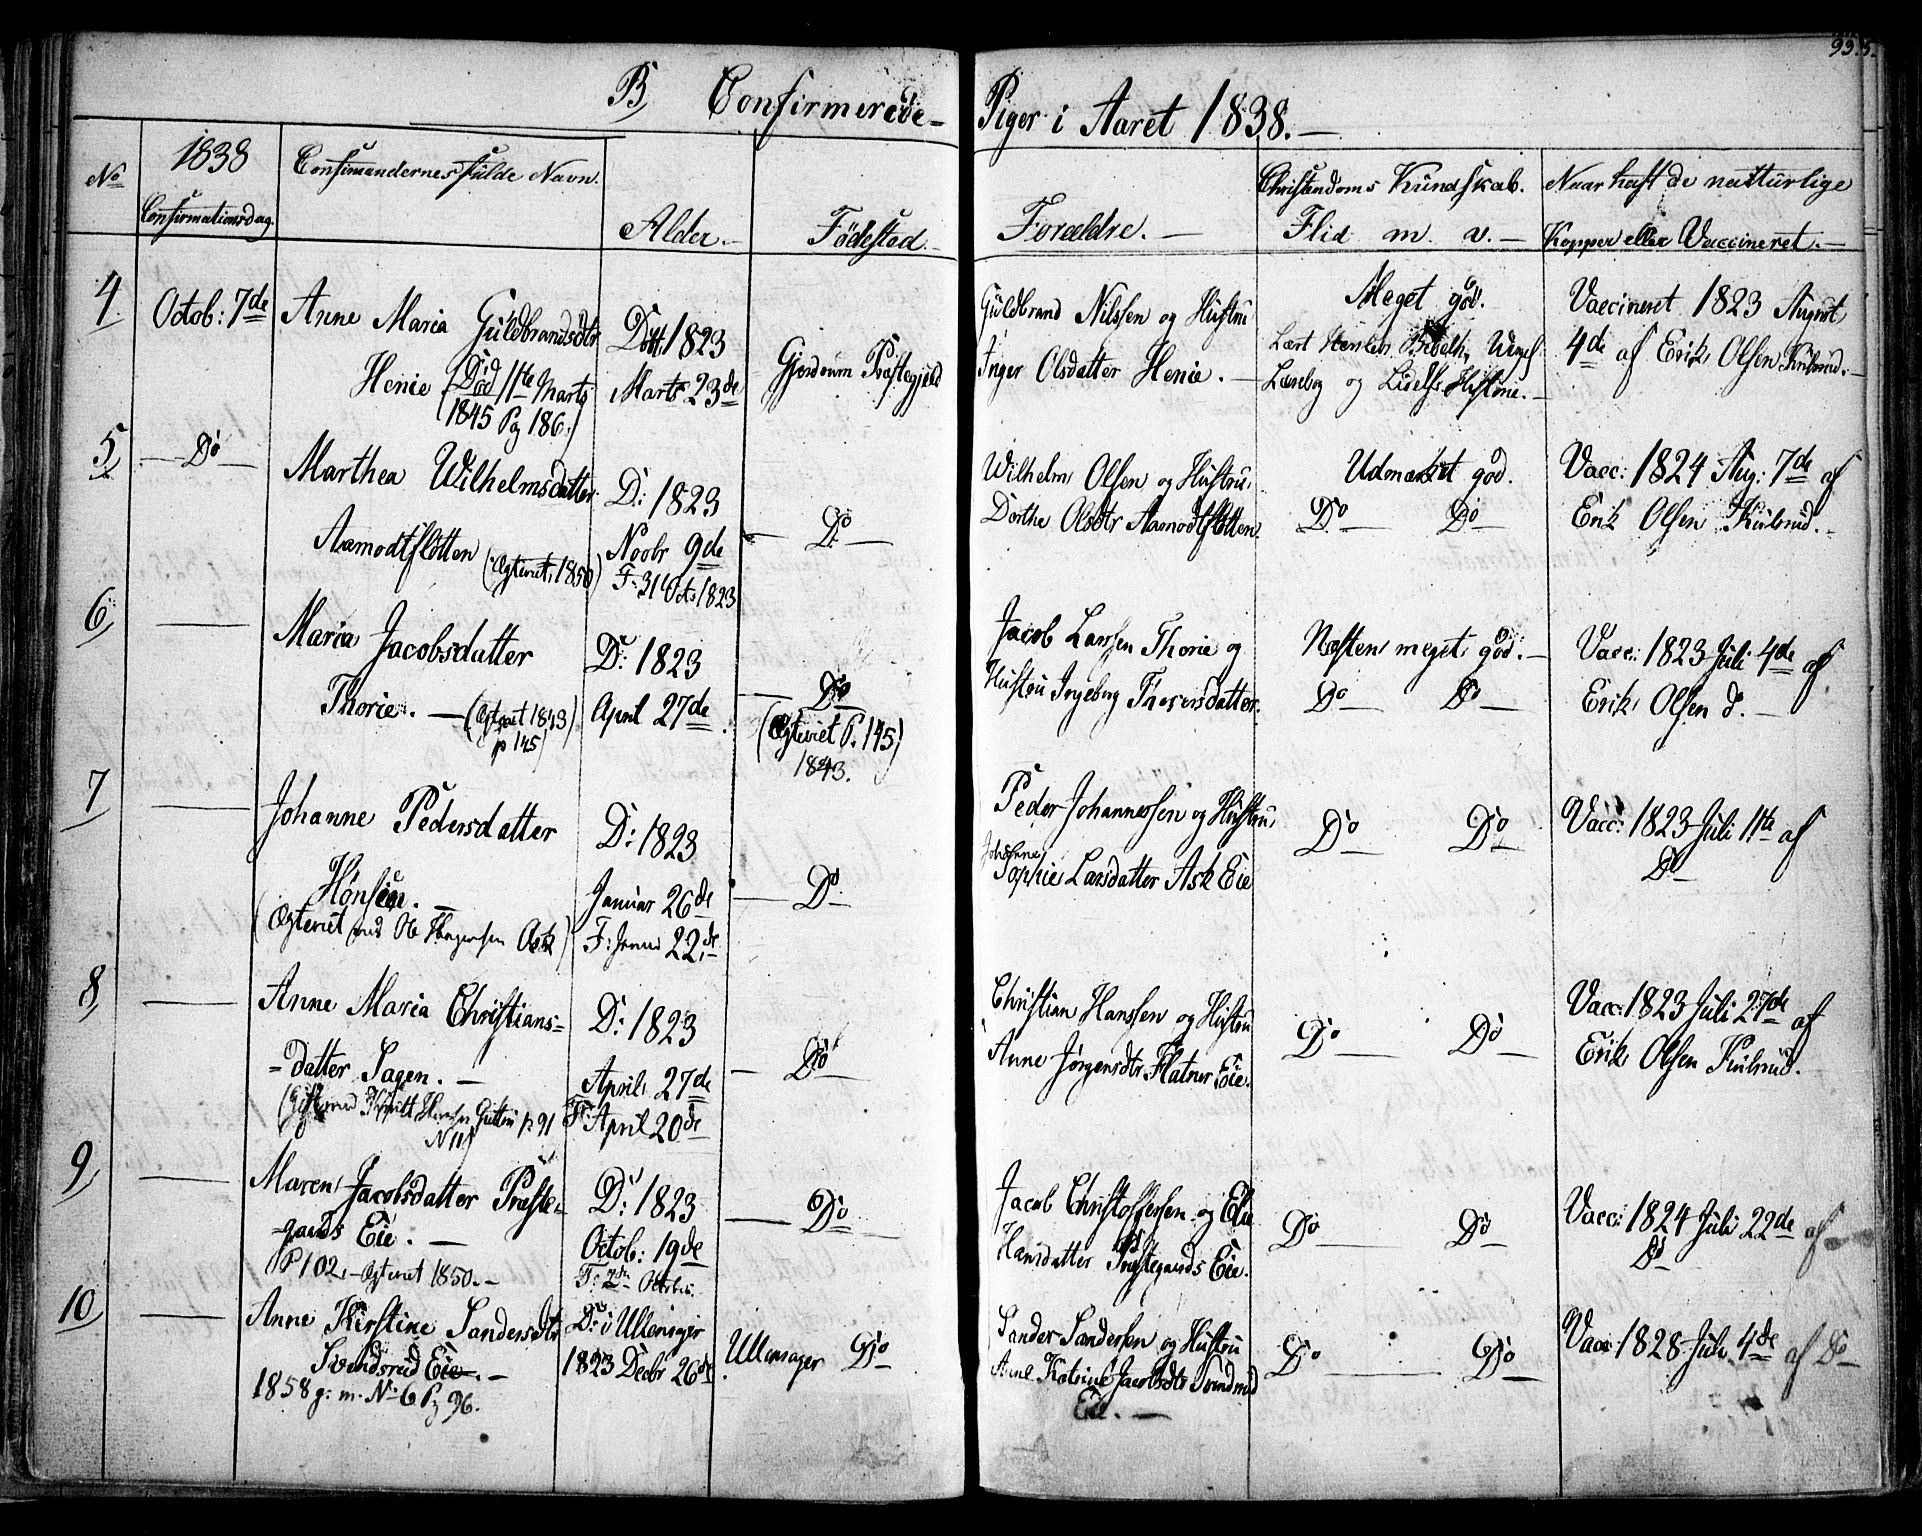 B, Confirmerede-
Piger i Aaret 1838.-
No
1838
Confirmationsdag.
Confirmandernes fulde Navn.
Alder.-
Fødestad.
Forældre. -
Christendoms Kundskab.
Flid m. v. -
Naar haft de naturlige
Kopper eller Vaccineret. -
4.
Octob: 7de
Anne Maria Guldbrandsdtr
Henie (Død 11te Marts
1845 Pag 186.)
1823
Marts 23de
Gjerdrum Præstegjeld
Guldbrand Nilssen og Hustru
Inger Olsdatter Henie. -
Meget god.
Lært
Lærebog og Historie. -
Vaccineret 1823 August
4de af Erik Olsen Kulsrud. -
5,
- Do -
Marthea Wilhelmsdatter
Aamodtflötten (Egteviet 1850)
D: 1823
Novbr 9de
F: 31 Octs 1823
- Do -
Wilhelm Olsen og Hustru
Dorthe Olsdtr Aamodtflötten
Udmærket god.
Do - Do -
Vacc: 1824 Aug: 7de af
Erik Olsen Kulsrud. -
6,
Maria Jacobsdatter
Thorie. - (Egteviet 1843)
p 145)
D: 1823
April 27de
- Do -
(Egteviet P. 145)
1843.
Jacob Larssen Thorie og
Hustru Ingeborg Thoversdatter.
Næsten meget god. -
Do - Do -
Vacc: 1823 Juli 4de af
Erik Olsen d. -
7,
Johanne Pedersdatter
Hønsen. -
(Egteviet med Ole Ask)
D: 1823
Januar 26de
F: Januar 22de -
- Do -
Peder Johannessen og Hustru
Johanne
Sophie Larsdatter Ask Eie
Do - Do -
Vacc: 1823 Juli 11te af
Do
8,
Anne Maria Christians=
=datter Sagen. -
(Gift med Hansen p 91
N 11)
D: 1823
April 27de
F: April 20de
- Do -
Christian Hanssen og Hustru
Anne Jørgensdtr Flatner Eie.
Do - Do -
Vacc: 1823 Juli 27de af
Erik Olsen Kulsrud.
9,
Maren Jacobsdatter Præste=
=gaards Eie. -
P 102. - Egteviet 1850. -
D: 1823
Octob: 19de
F: 7de October
- Do -
Jacob Christoffersen og Elie
Hansdatter Præstegaards Eie.
Do - Do -
Vacc: 1824 Juli 22de af
Do
10,
Anne Kirstine Sandersdtr
Svendsrud Eie. -
1858 g: m. No 6 Pag 96.
Do i Ullensager
1823 Decbr 26de
Ullensager Do
Sander Sandersen og Hustru
Anne Katrine Jacobsdtr Svendsrud
Eie. -
Do - Do -
Vacc 1828 Juli 4de af Do -